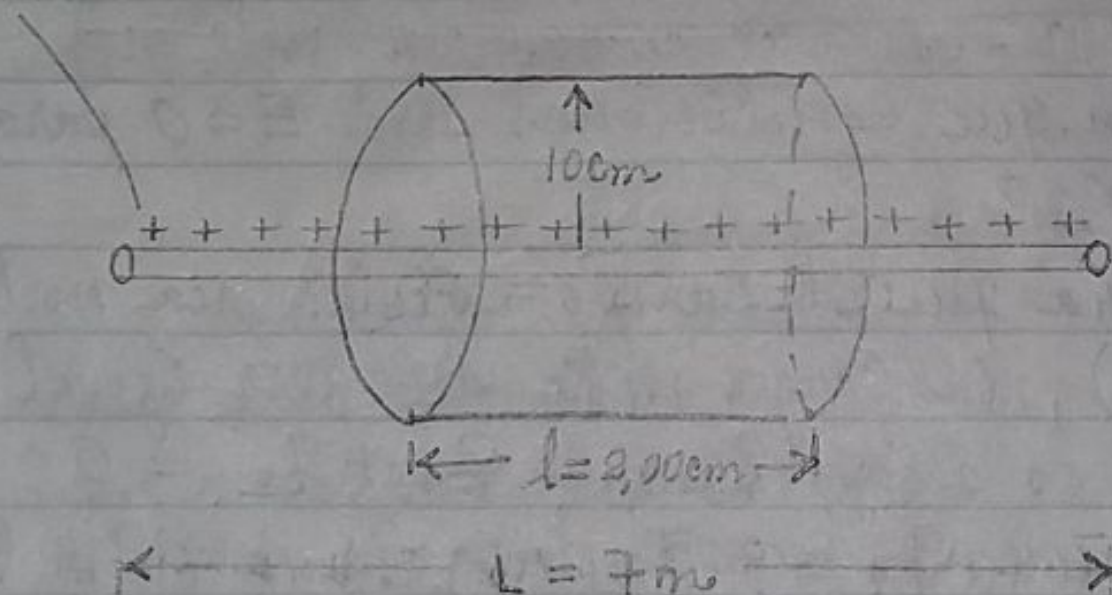 10cm
+ + + + + + + + + + + + + + + + +
l=2,00cm
L = 7m